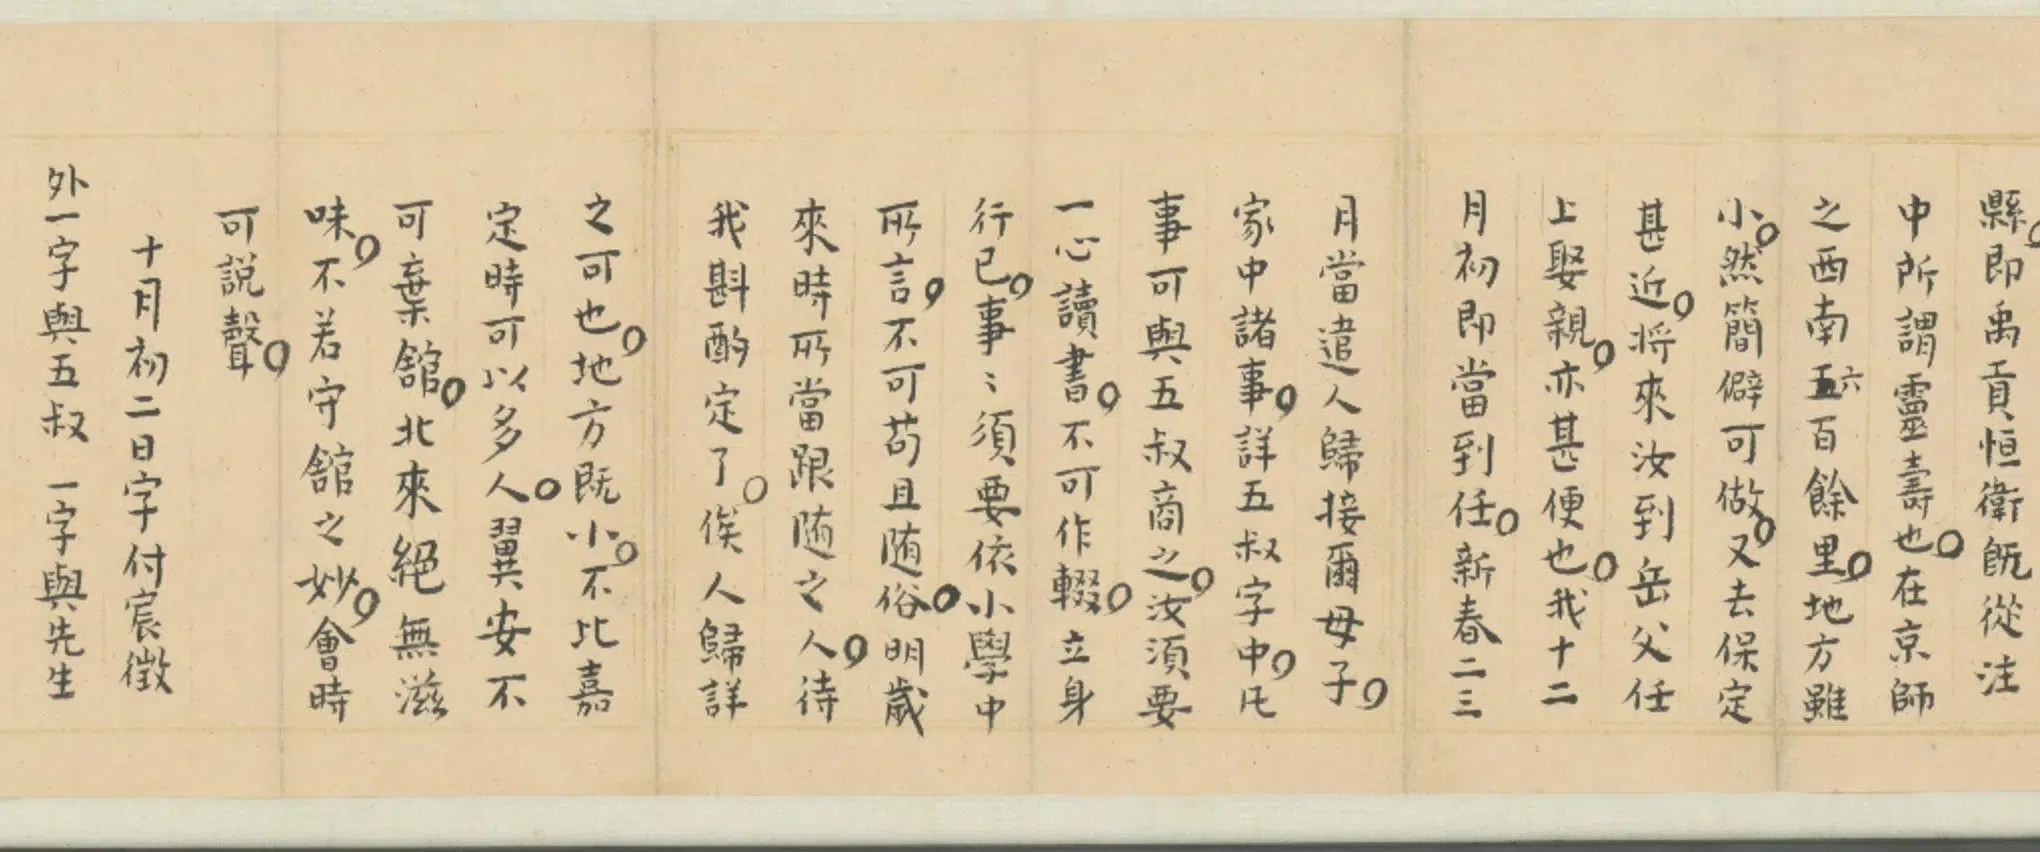 縣。即禹貢恒衛既從注
中所謂靈壽也。在京師
之西南五六百餘里。地方雖
小。然簡僻可做。又去保定
甚近。將來汝到岳父任
上娶親。亦甚便也。我十二
月初即當到任。新春二三
月當遣人歸接爾母子。
家中諸事。詳五叔字中。凡
事可與五叔商之。汝須要
一心讀書。不可作輟。立身
行己。事〻須要依小學中
所言。不可苟且随俗。明歲
來時所當跟随之人。待
我斟酌定了。俟人歸詳
之可也。地方既小。不比嘉
定時可以多人。翼安不
可棄館。北來絕無滋
味。不若守館之妙。會時
可説聲。
十月初二日字付宸徵
外一字與五叔 一字與先生